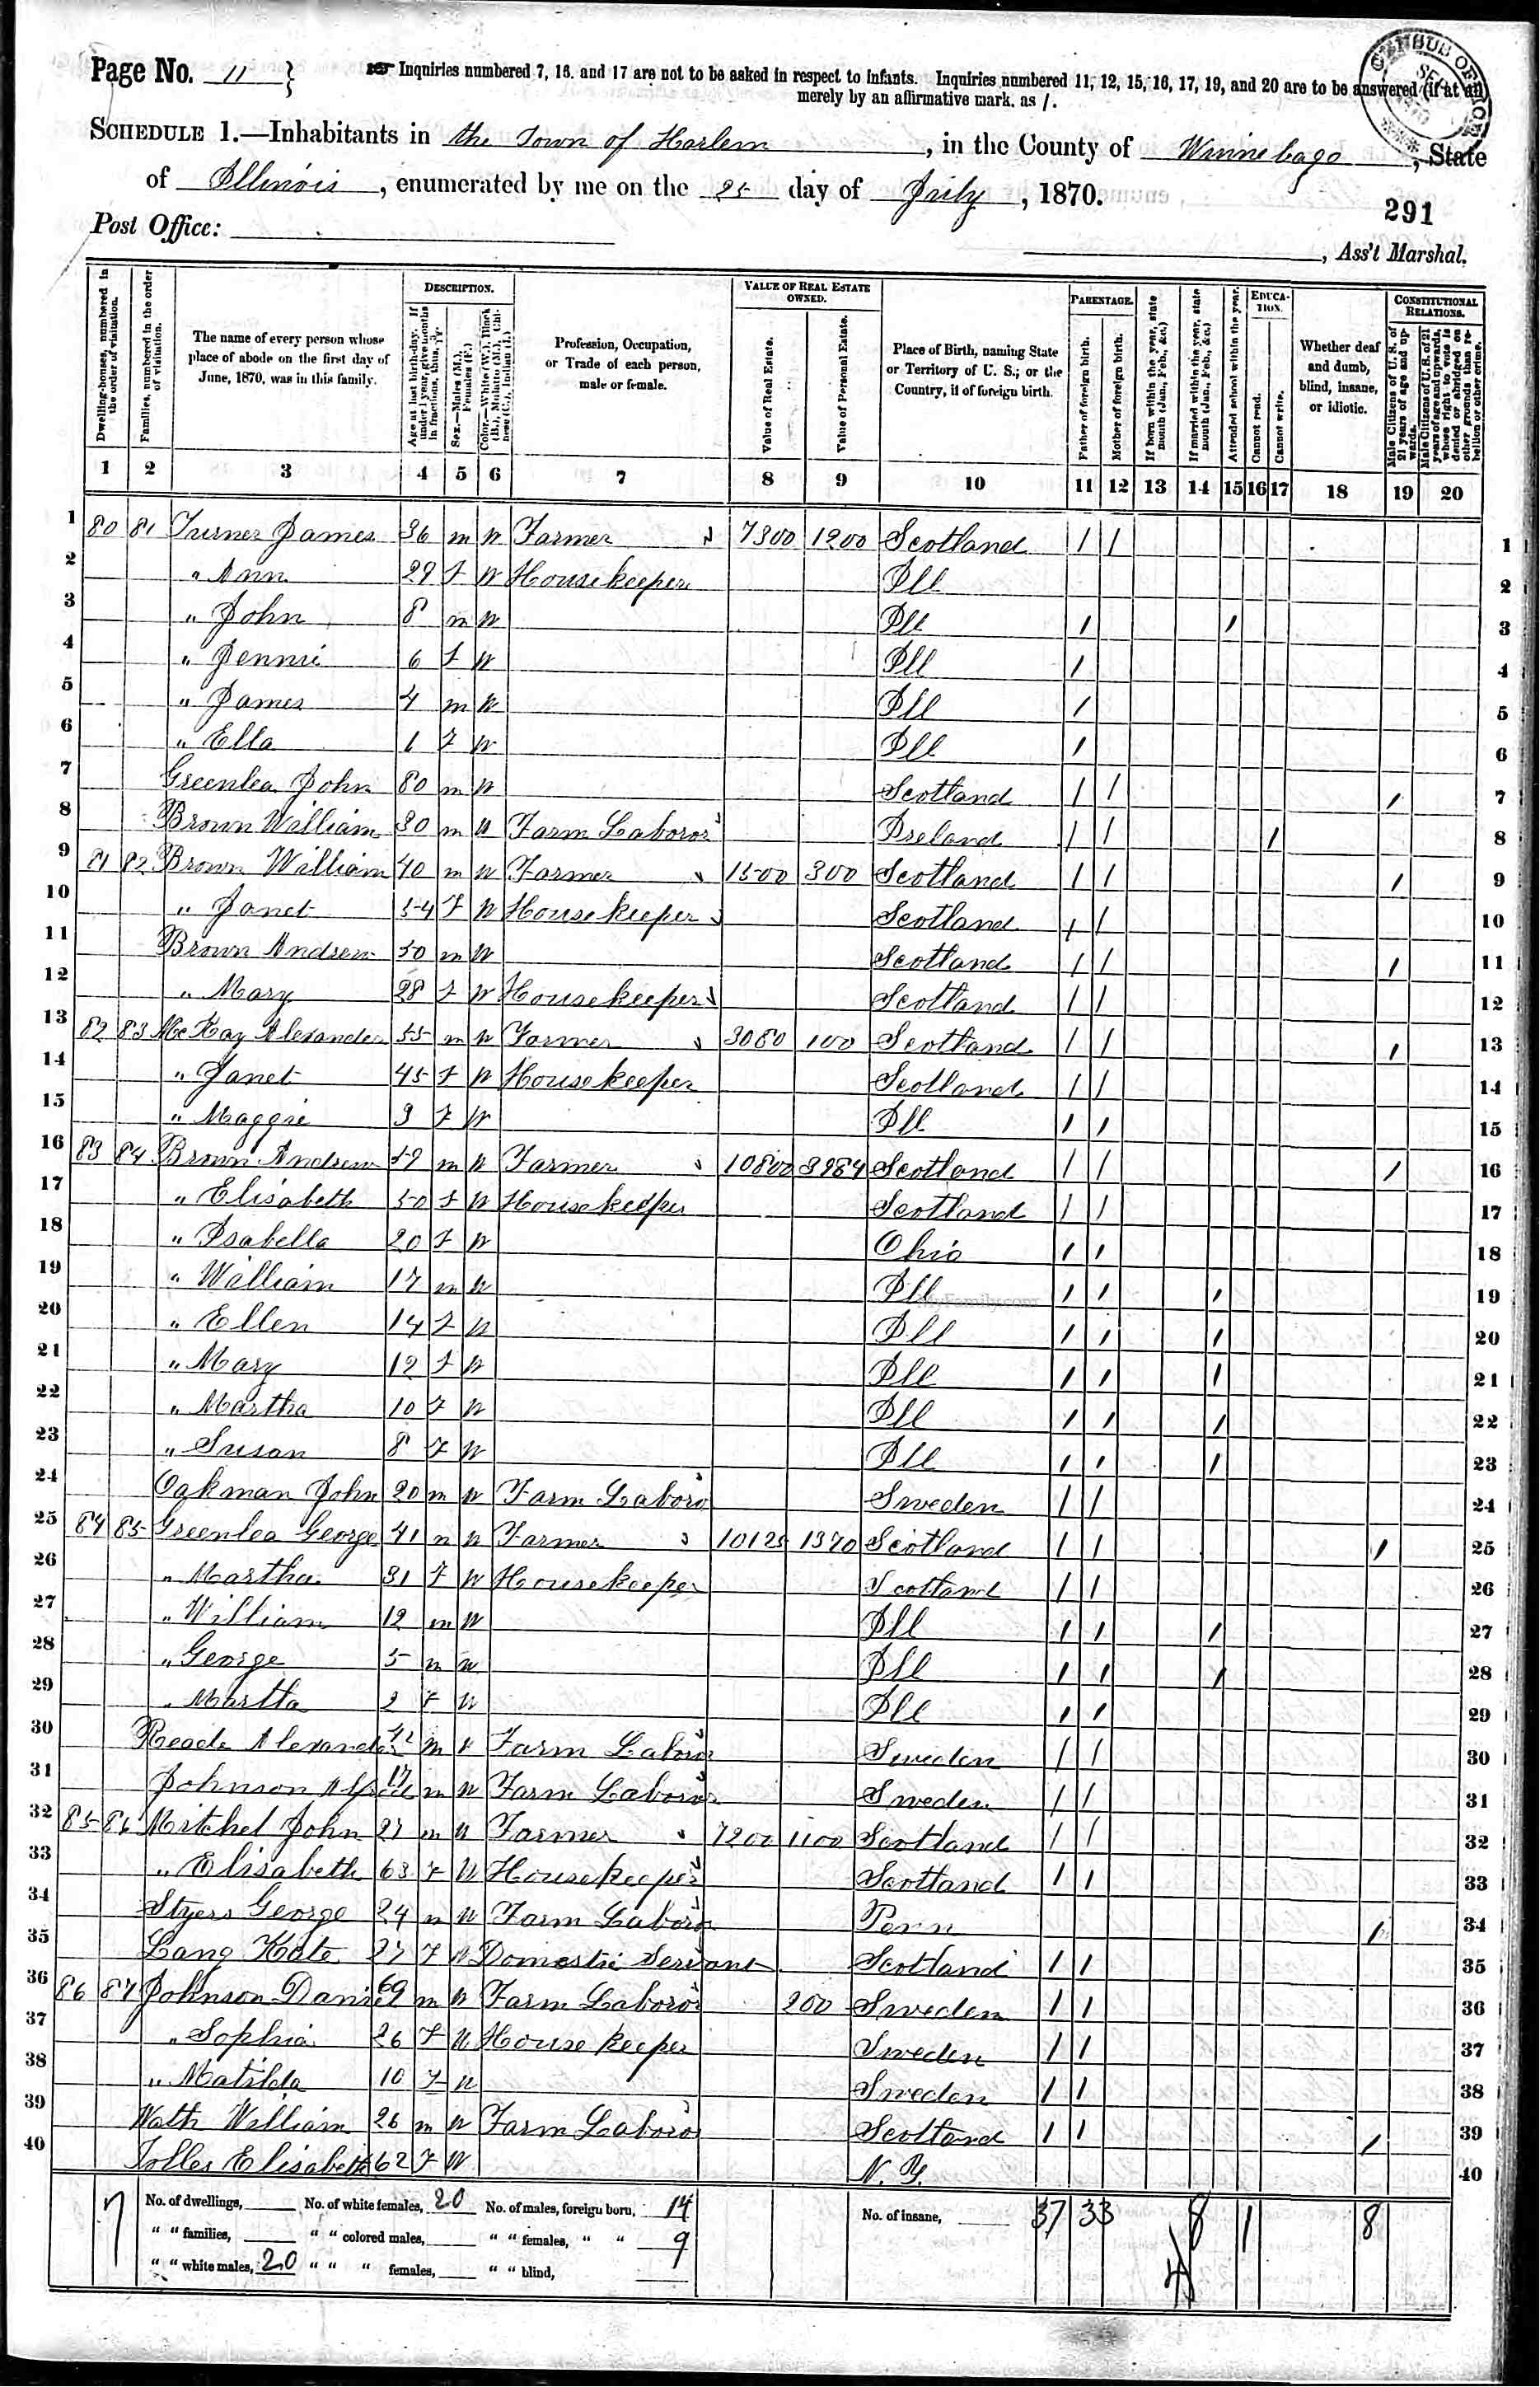 Page No. 11 }
Inquiries numbered 7, 16. and 17 are not to be asked in respect to infants. Inquiries numbered 11, 12, 15, 16, 17, 19, and 20 are to be answered (if at all)
merely by an affirmative mark. as /.
SCHEDULE 1.—Inhabitants in the Town of Harlem, in the County of Winnebago, State
of Illinois, enumerated by me on the 25 day of July, 1870.
291
Post Office:
, Ass't Marshal.
Dwelling-houses, numbered in the order of visitation.
Families, numbered in the order of visitation.
The name of every person whose place of abode on the first day of June, 1870, was in this family.
DESCRIPTION.
Age at last birth-day. If under 1 year, give months in fractions, thus,
Sex.—Males (M.), Females (F.)
Color.—White (W.), Black (B.), Mulatto (M.), Chinese (C.), Indian (I.)
Profession, Occupation, or Trade of each person, male or female.
VALUE OF REAL ESTATE OWNED.
Value of Real Estate.
Value of Personal Estate.
Place of Birth, naming State or Territory of U. S.; or the Country, if of foreign birth.
PARENTAGE.
Father of foreign birth.
Mother of foreign birth.
If born within the year, state month (Jan., Feb., &c.)
If married within the year, state month (Jan., Feb., &c.)
Attended school within the year.
EDUCATION.
Cannot read.
Cannot write.
Whether deaf and dumb, blind, insane, or idiotic.
CONSTITUTIONAL RELATIONS.
Male Citizens of U. S. of 21 years of age and upwards.
Male Citizens of U. S. of 21 years of age and upwards, whose right to vote is denied or abridged on other grounds than rebellion or other crime.
1 2 3 4 5 6 7 8 9 10 11 12 13 14 15 16 17 18 19 20
1 80 81 Turner James 36 m W Farmer 7300 1200 Scotland / / 1
2 " Ann 29 F W Housekeeper Ill 2
3 " John 8 m W Ill / / 3
4 " Jennie 6 F W Ill / 4
5 " James 4 m W Ill / 5
6 " Ella 1 F W Ill / 6
7 Greenlea John 80 m W Scotland / / / 7
8 Brown William 30 m W Farm Laboror Ireland / / / 8
9 81 82 Brown William 40 m W Farmer 1500 300 Scotland / / / 9
10 " Janet 54 F W Housekeeper Scotland / / 10
11 Brown Andrew 50 m W Scotland / / / 11
12 " Mary 28 F W Housekeeper Scotland / / 12
13 82 83 McKay Alexander 55 m W Farmer 3080 100 Scotland / / / 13
14 " Janet 45 F W Housekeeper Scotland / / 14
15 " Maggie 9 F W Ill / / 15
16 83 84 Brown Andrew 59 m W Farmer 10800 3984 Scotland / / / 16
17 " Elisabeth 50 F W Housekeeper Scotland / / 17
18 " Isabella 20 F W Ohio / / 18
19 " William 17 m W Ill / / / 19
20 " Ellen 14 F W Ill / / / 20
21 " Mary 12 F W Ill / / / 21
22 " Martha 10 F W Ill / / / 22
23 " Susan 8 F W Ill / / / 23
24 Oakman John 20 m W Farm Laboro Sweden / / 24
25 84 85 Greenlea George 41 m W Farmer 10125 1370 Scotland / / / 25
26 " Martha 31 F W Housekeeper Scotland / / 26
27 " William 12 m W Ill / / / 27
28 " George 5 m W Ill / / / 28
29 " Martha 2 F W Ill / / 29
30 Reade Alexander m W Farm Laboror Sweden / / 30
31 Johnson 17 m W Farm Laboror Sweden / / 31
32 85 86 Mitchel John 27 m W Farmer 7200 1100 Scotland / / 32
33 " Elisabeth 63 F W Housekeeper Scotland / / 33
34 Styers George 24 m W Farm Laboror Penn / 34
35 Lang Kate 27 F W Domestic Servant Scotland / / 35
36 86 87 Johnson Daniel 69 m W Farm Laboror 200 Sweden / / 36
37 " Sophia 26 F W House keeper Sweden / / 37
38 " Matilda 10 F W Sweden / / 38
39 Wath William 26 m W Farm Laboro Scotland / / / 39
40 Toller Elisabeth 62 F W N. Y. 40
MyFamily.com
7 No. of dwellings, No. of white females, 20 No. of males, foreign born, 14 No. of insane, 37 33 8 1 8
" " families, " " colored males, " " females, " " 9
" " white males, 20 " " " females, " " blind, 4